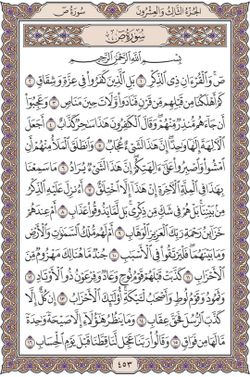 الجزء الثالث والعشرون سورة ص
سورة ص
بسم الله الرحمن الرحيم
ص والقرءان ذي الذكر ١ بل الذين كفروا في عزة وشقاق ٢
كم أهلكنا من قبلهم من قرن فنادوا ولات حين مناص ٣ وعجبوا
أن جاءهم منذر منهم وقال الكافرون هذا ساحر كذاب ٤ أجعل
الآلهة إلها واحدا إن هذا لشيء عجاب ٥ وانطلق الملأ منهم أن
امشوا واصبروا على آلهتكم إن هذا لشيء يراد ٦ ما سمعنا
بهذا في الملة الآخرة إن هذا إلا اختلاق ٧ أءنزل عليه الذكر
من بيننا بل هم في شك من ذكري بل لما يذوقوا عذاب ٨ أم عندهم
خزائن رحمة ربك العزيز الوهاب ٩ أم لهم ملك السماوات والأرض
وما بينهما فليرتقوا في الأسباب ١٠ جند ما هنالك مهزوم من
الأحزاب ١١ كذبت قبلهم قوم نوح وعاد وفرعون ذو الأوتاد ١٢
وثمود وقوم لوط وأصحاب لئيكة أولئك الأحزاب ١٣ إن كل إلا
كذب الرسل فحق عقاب ١٤ وما ينظر هؤلاء إلا صيحة واحدة
ما لها من فواق ١٥ وقالوا ربنا عجل لنا قطنا قبل يوم الحساب ١٦
٤٥٣